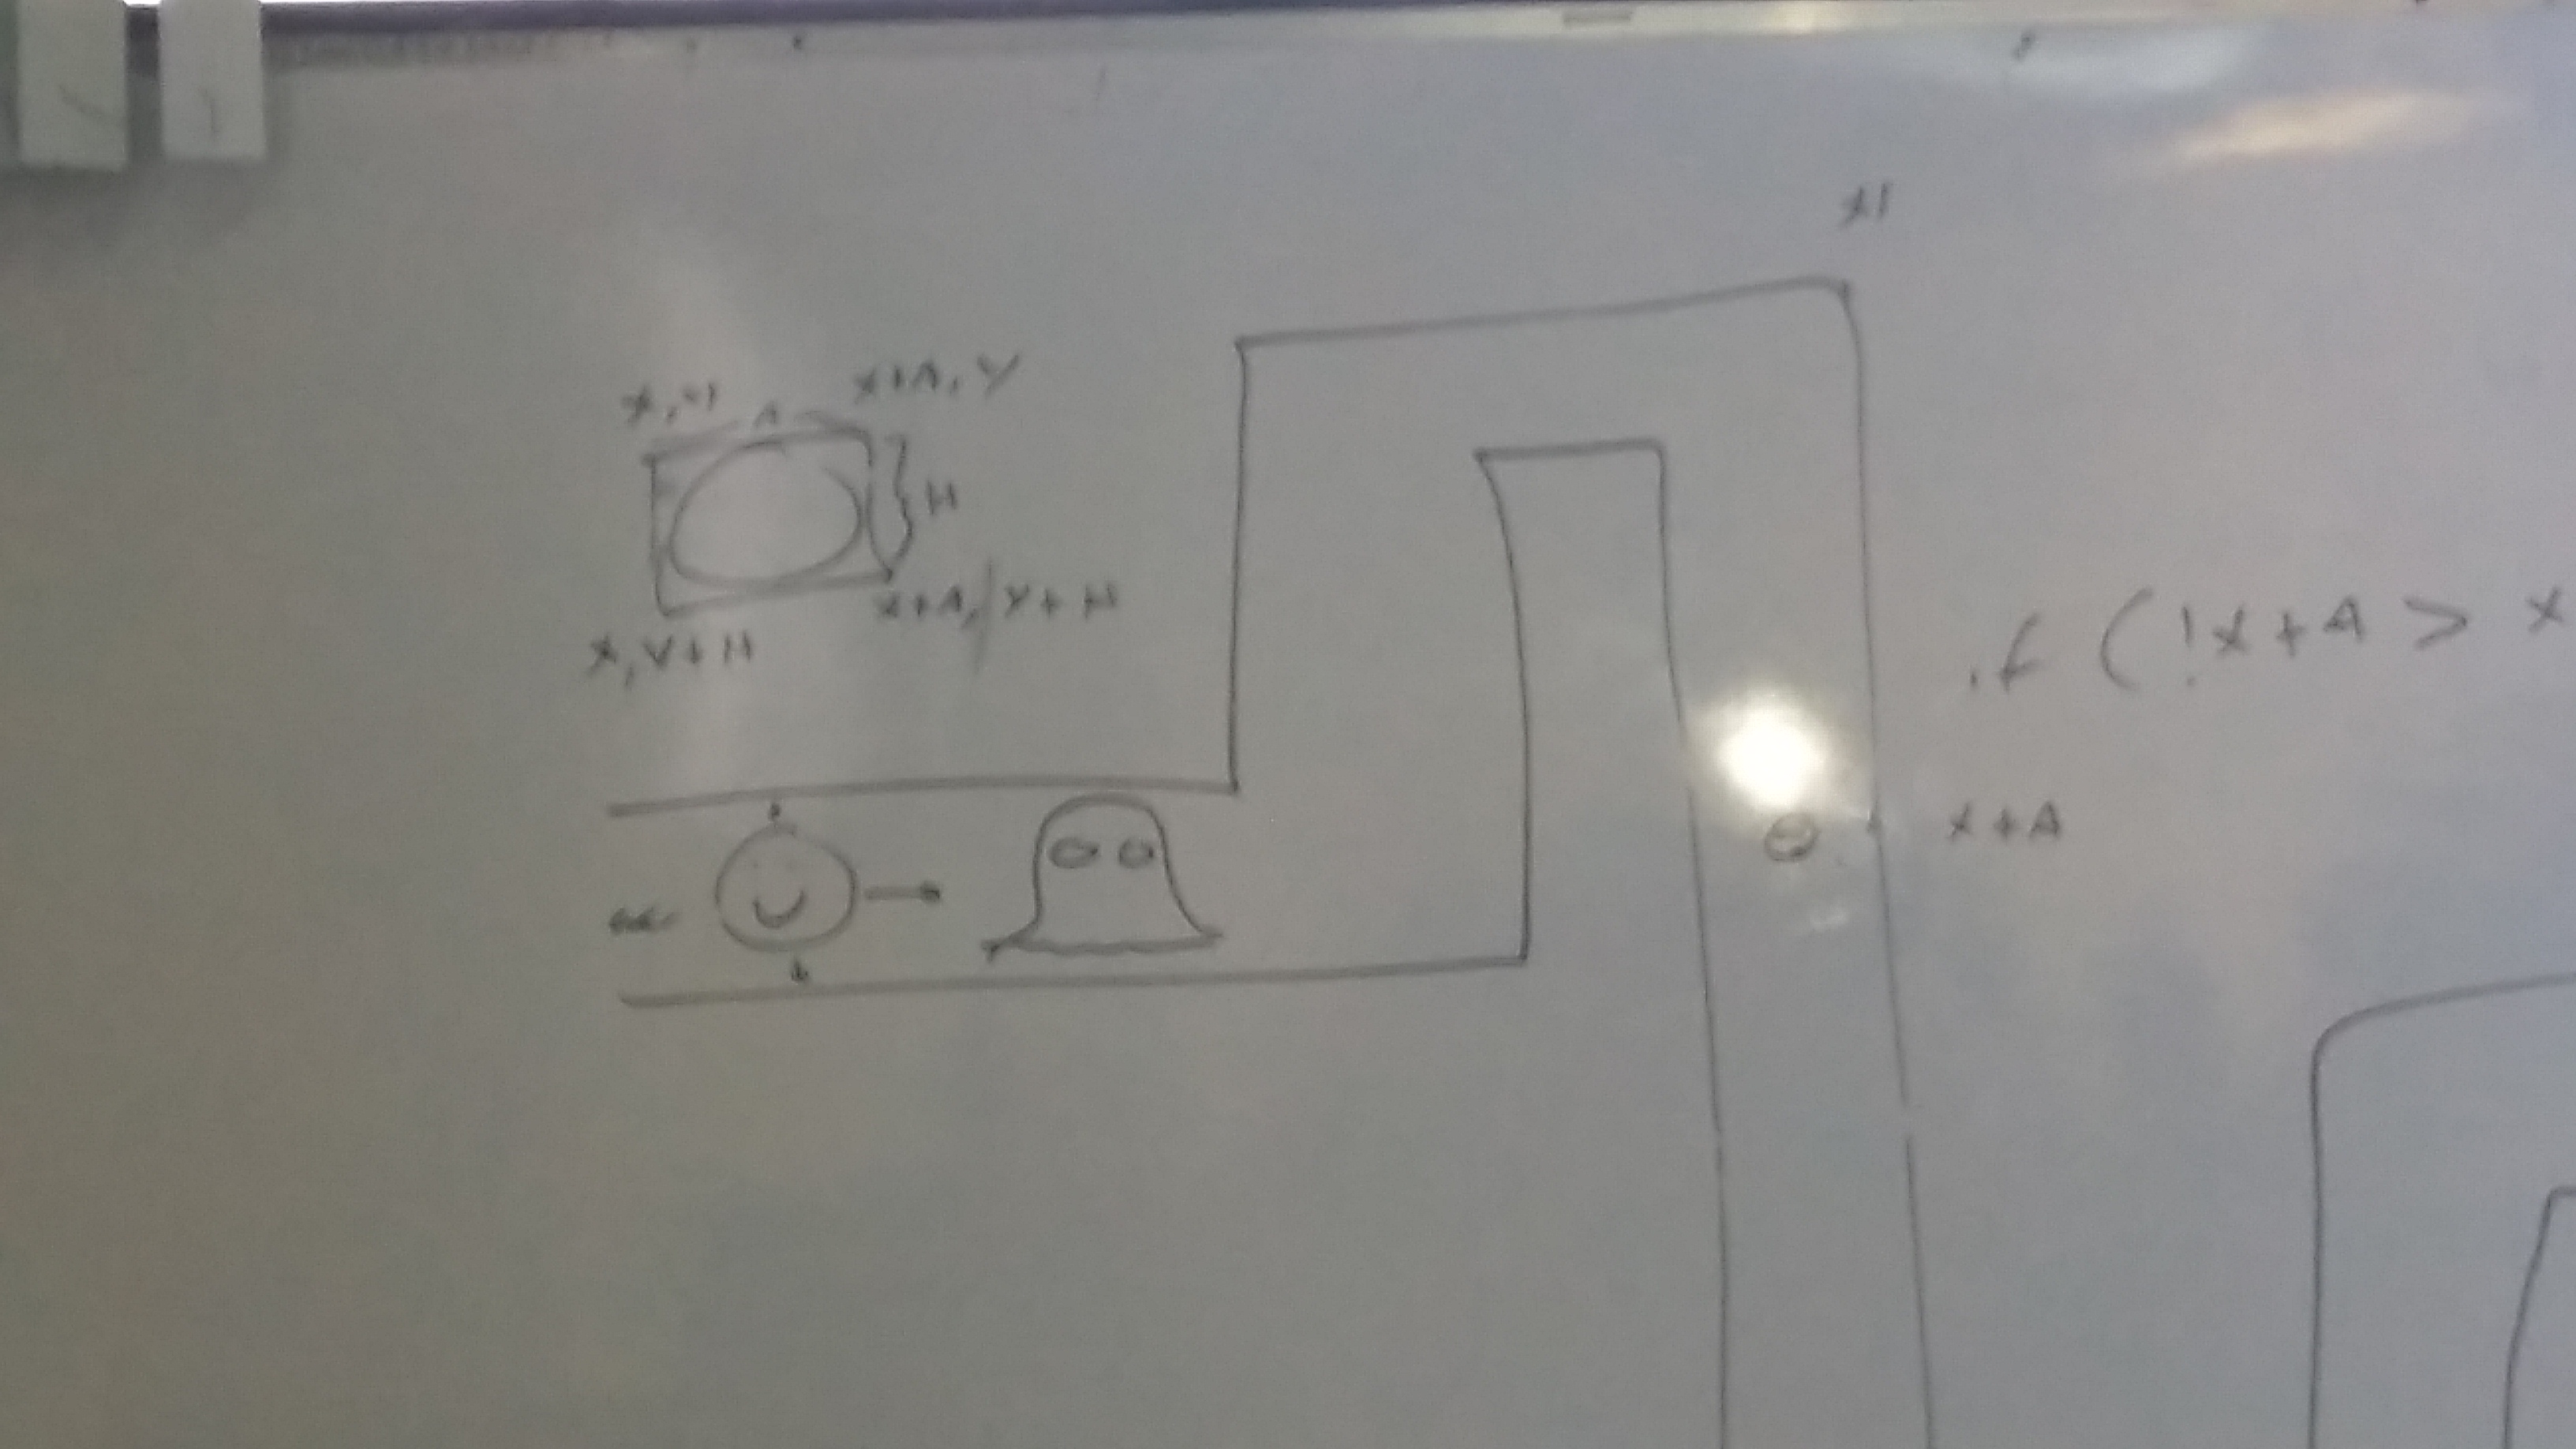 x1
x, y A x+A, y
} H
x+A, y+H
x, y+H
if (!x+A > x
x+A